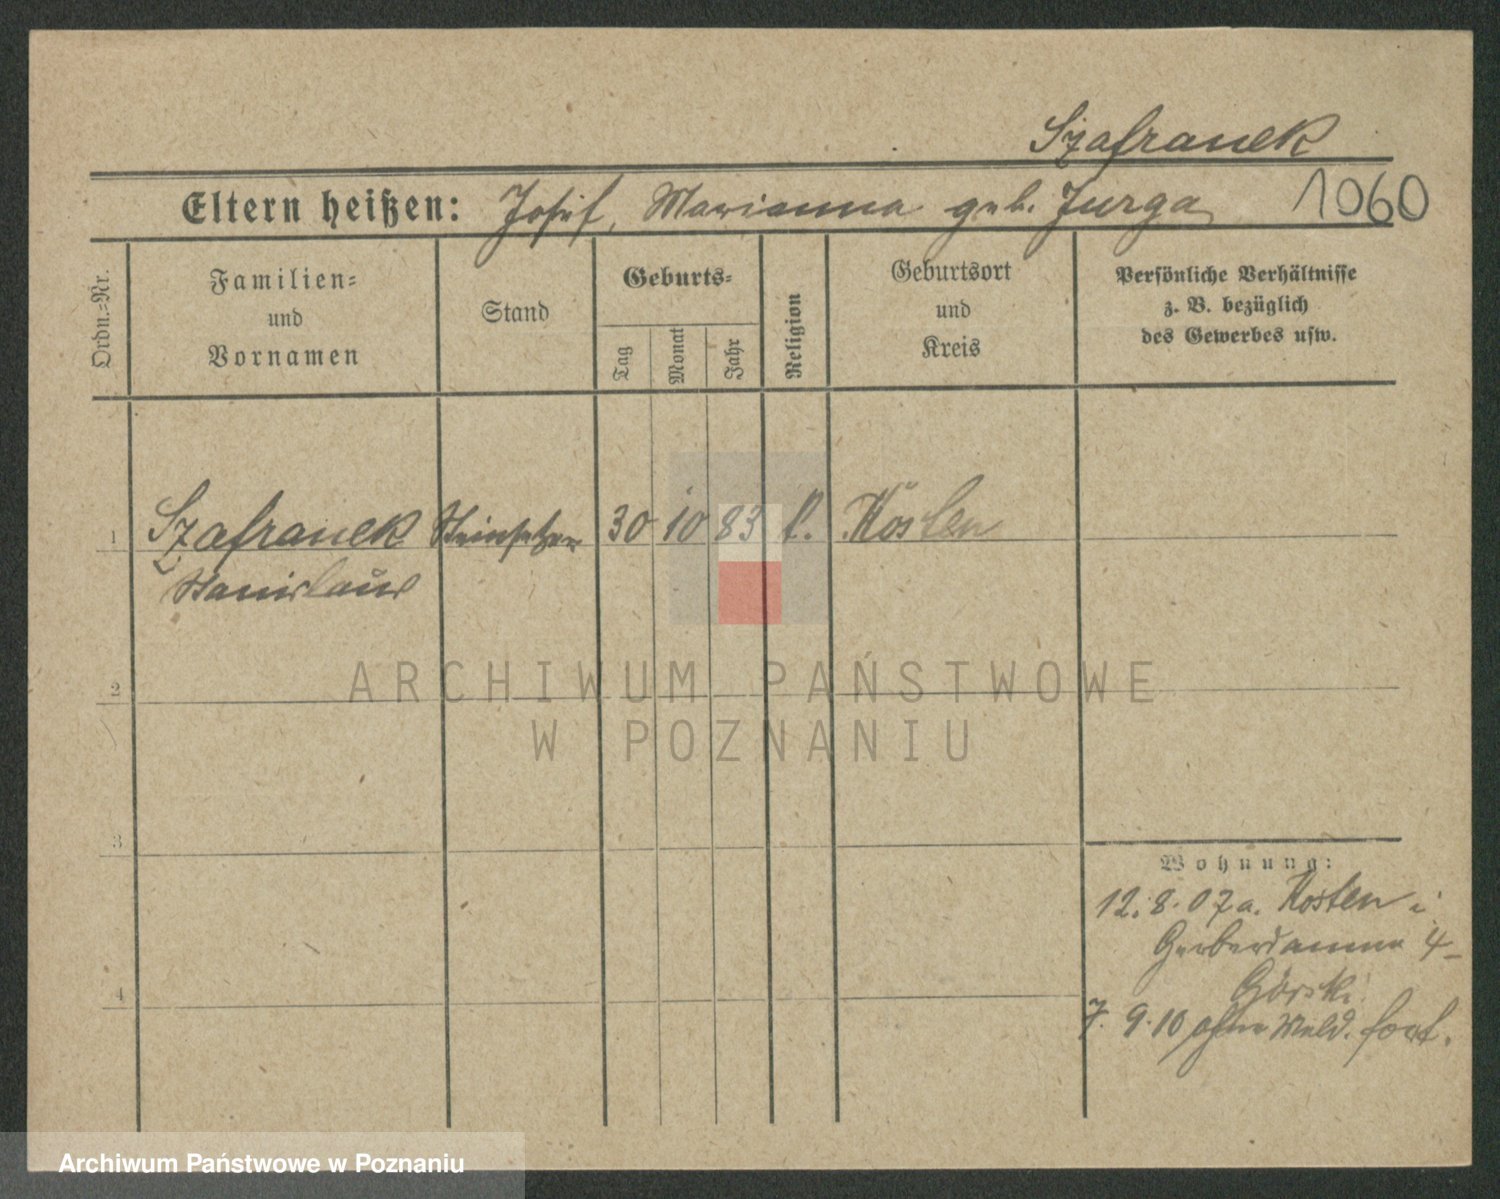 Szafranek
Eltern heißen: Josef, Marianna geb. Jurga
1060
Ordn.-Nr.
Familien-
und
Vornamen
Stand
Geburts-
Tag
Monat
Jahr
Religion
Geburtsort
und
Kreis
Persönliche Verhältnisse
z. B. bezüglich
des Gewerbes usw.
1 Szafranek Steinsetzer 30 10 83 k. Kosten
Stanislaus
2
ARCHIWUM PAŃSTWOWE
W POZNANIU
3
Wohnung:
12. 8. 07 a. Kosten
Gerberdamm 4
Górski
7. 9. 10 ohne Meld. fort.
4
Archiwum Państwowe w Poznaniu